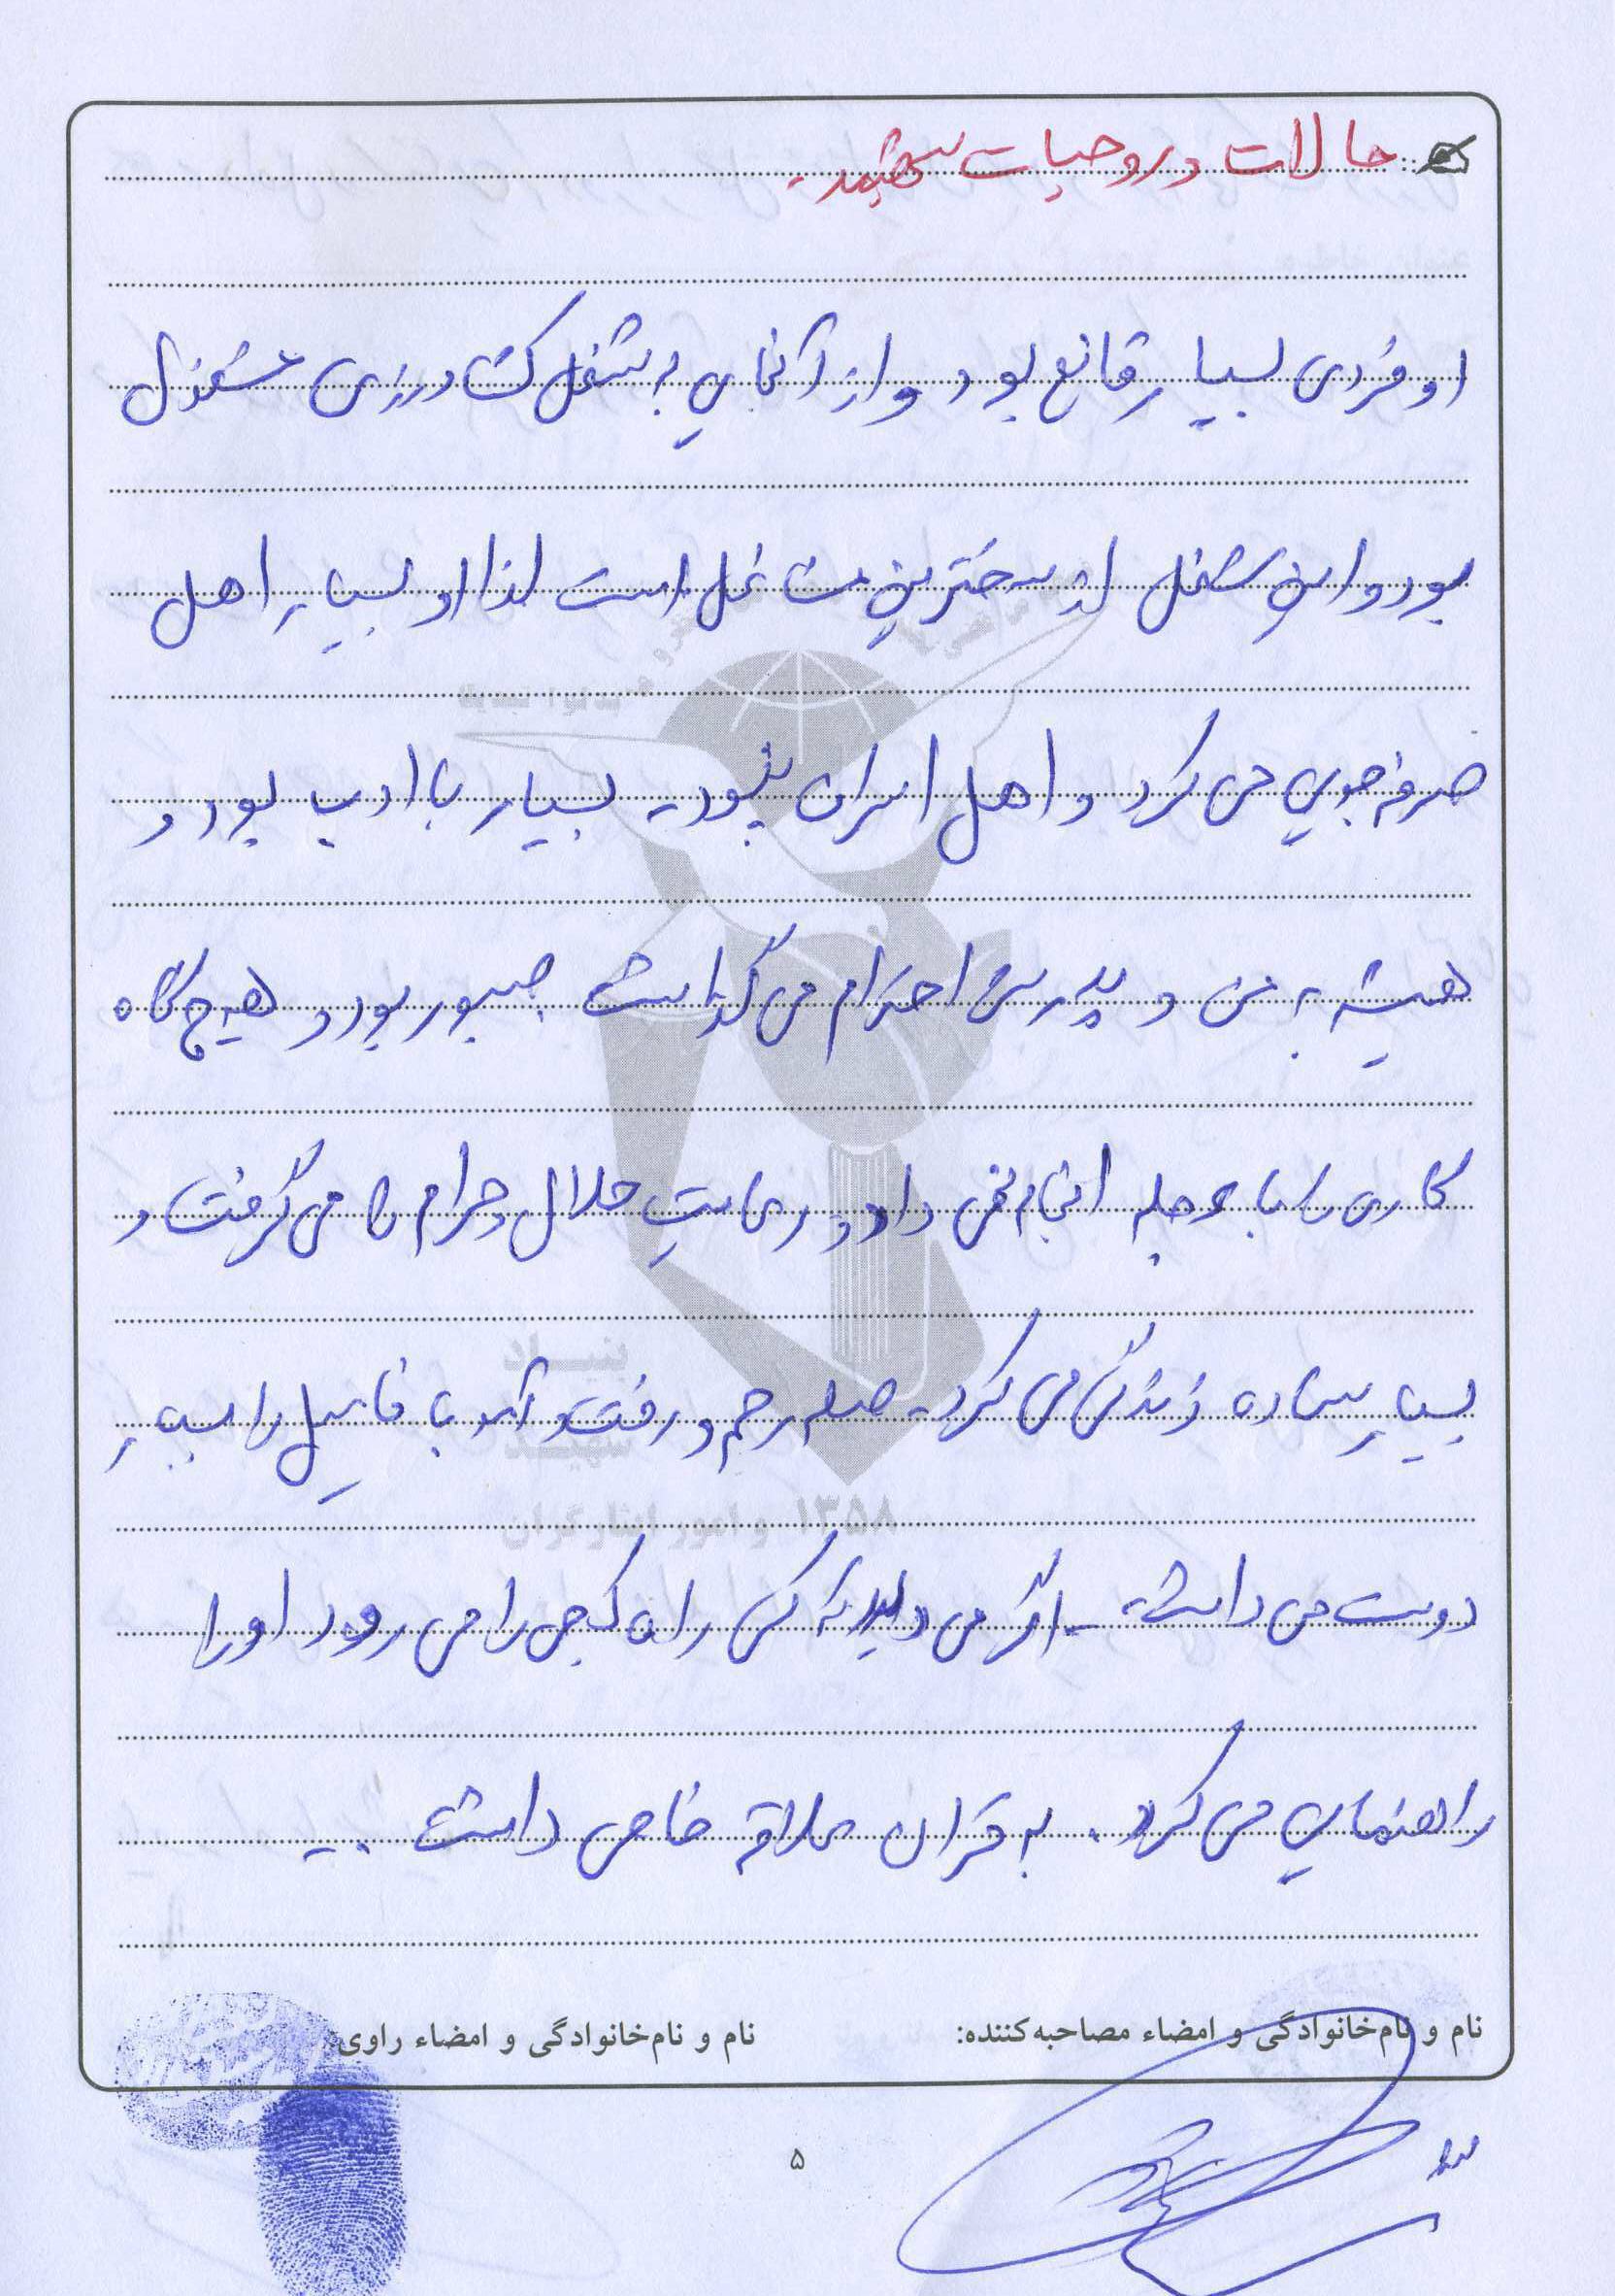 حالات و روحیات شهید.
او فردی بسیار قانع بود و از آنجایی به شغل کشاورزی مشغول
بود و این شغل از سخترین مشاغل است لذا او بسیار اهل
صرفه جویی می کرد و اهل اسراف نبود. بسیار با ادب بود و
همیشه به من و پدرش احترام می گذاشت صبور بود و هیچ گاه
کاری را با عجله انجام نمی داد و رعایت حلال و حرام را می گرفت و
بسیار ساده زندگی می کرد. صله رحم و رفت و آمد با فامیل را بسیار
دوست می داشت. اگر می دید که کسی راه کجی را می رود او را
راهنمایی می کرد. به قرآن علاقه خاصی داشت.
بنیاد
شهید
و امور ایثارگران ۱۳۵۸
نام و نام‌خانوادگی و امضاء مصاحبه‌کننده:
نام و نام‌خانوادگی و امضاء راوی:
۵